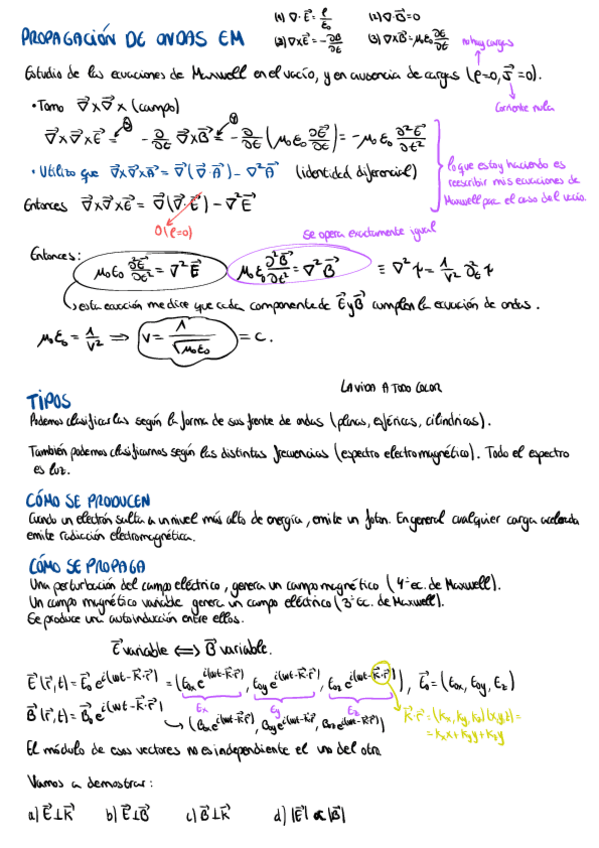 (1) ∇·E⃗ = ρ/ε₀ (2) ∇·B⃗ = 0
PROPAGACIÓN DE ONDAS EM
(3) ∇×E⃗ = -∂B⃗/∂t (3) ∇×B⃗ = μ₀ε₀ ∂E⃗/∂t
no hay cargas
Estudio de las ecuaciones de Maxwell en el vacío, y en ausencia de cargas (ρ=0, J⃗=0).
corriente nula
• Tomo ∇⃗×∇⃗× (campo)
∇⃗×∇⃗×E⃗ = -∂/∂t ∇⃗×B⃗ = -∂/∂t (μ₀ε₀ ∂E⃗/∂t) = -μ₀ε₀ ∂²E⃗/∂t²
• Utilizo que ∇⃗×∇⃗×A⃗ = ∇⃗(∇⃗·A⃗) - ∇²A⃗ (identidad diferencial)
lo que estoy haciendo es
reescribir mis ecuaciones de
Maxwell par el caso del vacío.
Entonces ∇⃗×∇⃗×E⃗ = ∇⃗(∇⃗·E⃗) - ∇²E⃗
0 (ρ=0)
se opera exactamente igual
Entonces:
μ₀ε₀ ∂²E⃗/∂t² = ∇²E⃗ μ₀ε₀ ∂²B⃗/∂t² = ∇²B⃗ ≡ ∇²ψ = 1/v² ∂²ₜ ψ
esta ecuación me dice que cada componente de E⃗ y B⃗ cumplen la ecuación de ondas.
μ₀ε₀ = 1/v² ⟹ v = 1/√μ₀ε₀ = c.
LA VIDA A TODO COLOR
TIPOS
Podemos clasificarlas según la forma de sus frente de ondas (planas, esféricas, cilíndricas).
También podemos clasificarnos según las distintas frecuencias (espectro electromagnético). Todo el espectro
es luz.
CÓMO SE PRODUCEN
Cuando un electrón salta a un nivel más alto de energía, emite un foton. En general cualquier carga acelerada
emite radiación electromagnética.
CÓMO SE PROPAGA
Una perturbación del campo eléctrico, genera un campo magnético (4ª ec. de Maxwell).
Un campo magnético variable genera un campo eléctrico (3ª Ec. de Maxwell).
Se produce una autoinducción entre ellos.
E⃗ variable ⟺ B⃗ variable.
E⃗(r⃗,t) = E⃗₀ e^i(ωt-K⃗·r⃗) = (E₀ₓ e^i(ωt-K⃗·r⃗), E₀y e^i(ωt-K⃗·r⃗), E₀z e^i(ωt-K⃗·r⃗)), E⃗₀ = (E₀ₓ, E₀y, Ez)
Ex Ey Ez
B⃗(r⃗,t) = B⃗₀ e^i(ωt-K⃗·r⃗) → (B₀ₓ e^i(ωt-K⃗·r⃗), B₀y e^i(ωt-K⃗·r⃗), B₀z e^i(ωt-K⃗·r⃗))
K⃗·r⃗ = (Kx, Ky, Kz)(x,y,z) =
= Kx x + Ky y + Kz z
El módulo de esos vectores no es independiente el uno del otro
Vamos a demostrar:
a) E⃗ ⊥ K⃗ b) E⃗ ⊥ B⃗ c) B⃗ ⊥ K⃗ d) |E⃗| ∝ |B⃗|